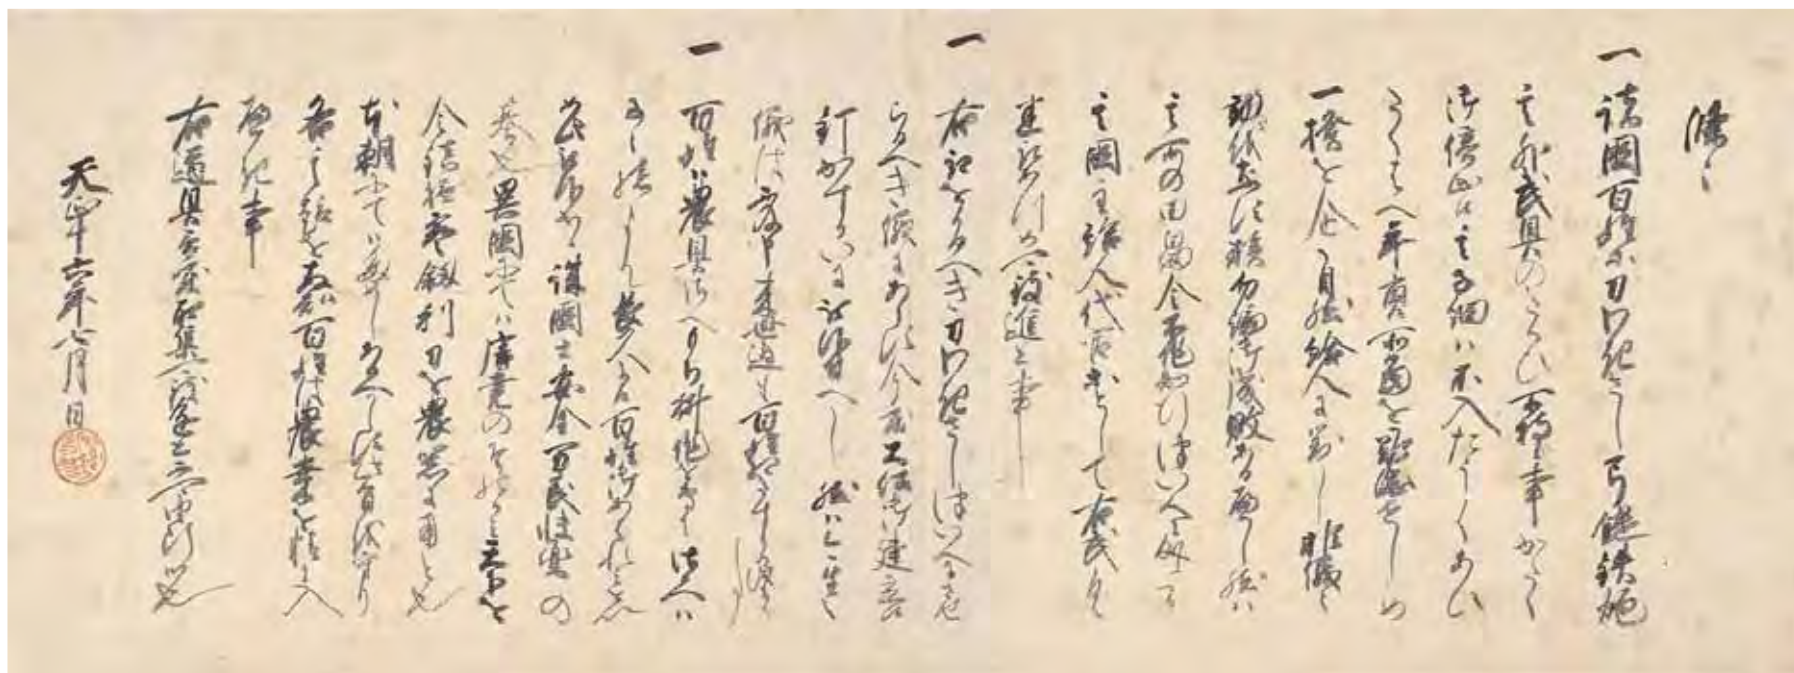 條々
一 諸國百姓等刀わきさし弓鑓鉄炮
其外武具のたくひ所持候事かたく
御停止候其子細ハ不入たうくあひ
たくはへ年貢所當を難渋せしめ
一揆を企自然給人に對し非儀之
動をなす族勿論御成敗あるへし然ハ
其所の田畠令不作知行ついへ
其國主給人代官等として右武具
悉取あつめ可致進上事
一 右取をかるへき刀わきさしついへにさせ
らるへき儀にあらす今度大佛御建立
釘かすかいに被仰付へし然ハ今生之
儀は不及申来世迄も百姓相たすかる儀
一 百姓ハ農具さへもち耕作専に仕候へハ
子々孫々まて長久に候百姓御あはれミを以
如此被仰出候誠國土安全万民快樂の
基也異國にてハ唐尭のそのかミ天下を
令鎮撫寶劔利刀を農器に用と也
本朝にてハためしあるへからす此旨を守り
各其趣を存知百姓は農桑を精に入
へき事
右道具急度取集可致進上不可油断候也
天正十六年七月日